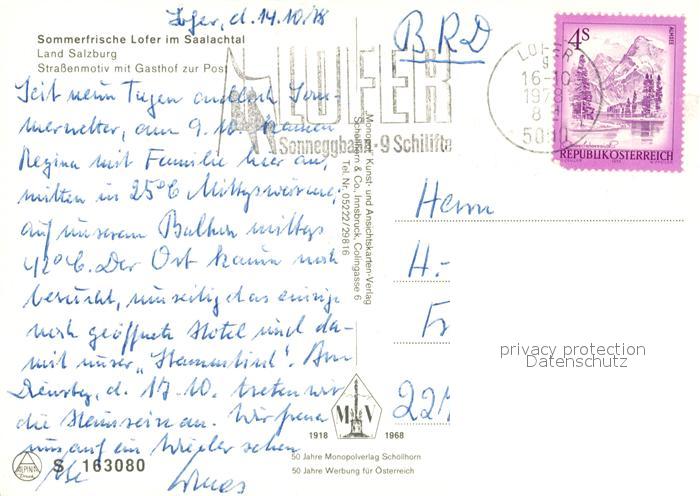 Lofer, d. 14.10.78
Sommerfrische Lofer im Saalachtal
Land Salzburg
Straßenmotiv mit Gasthof zur Post
Seit neun Tagen endlich Som-
merwetter, am 9. 10. kamen
Regina mit Familie hier an,
mitten in 25°C Mittagswärme,
auf unserem Balkon mittags
42°C. Der Ort kaum noch
besucht, das einzige
noch geöffnete Hotel und da-
mit unser „Stammtisch". Am
Dienstag, d. 17.10. treten wir
die Heimreise an. Wir freuen
uns auf ein Wiedersehen
S 163080
BRD
LOFER
Sonneggbahn · 9 Schilifte
LOFER
16-10
1978
8
5090
4S
ALMSEE
REPUBLIK ÖSTERREICH
„Monopol" Kunst- und Ansichtskarten-Verlag
Schöllhorn & Co., Innsbruck, Colingasse 6
Tel. Nr. 05222/29816
Herrn
H.-
Fr
221
privacy protection
Datenschutz
M V
1918 1968
50 Jahre Monopolverlag Schöllhorn
50 Jahre Werbung für Österreich